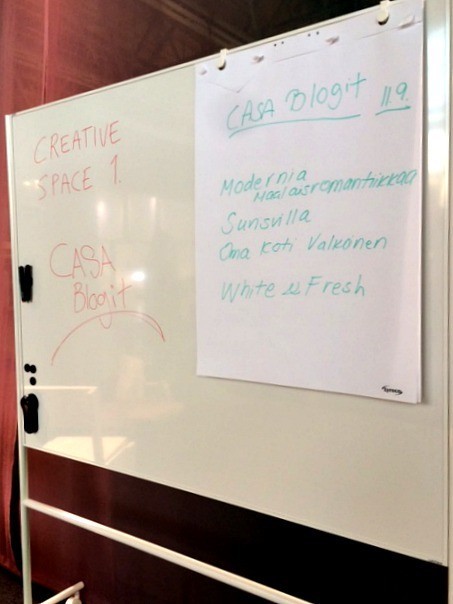 CREATIVE
SPACE 1.
CASA
Blogit
CASA Blogit 11.9.
Modernia
Maalaisromantiikkaa
Sunsvilla
Oma Koti Valkoinen
White & Fresh